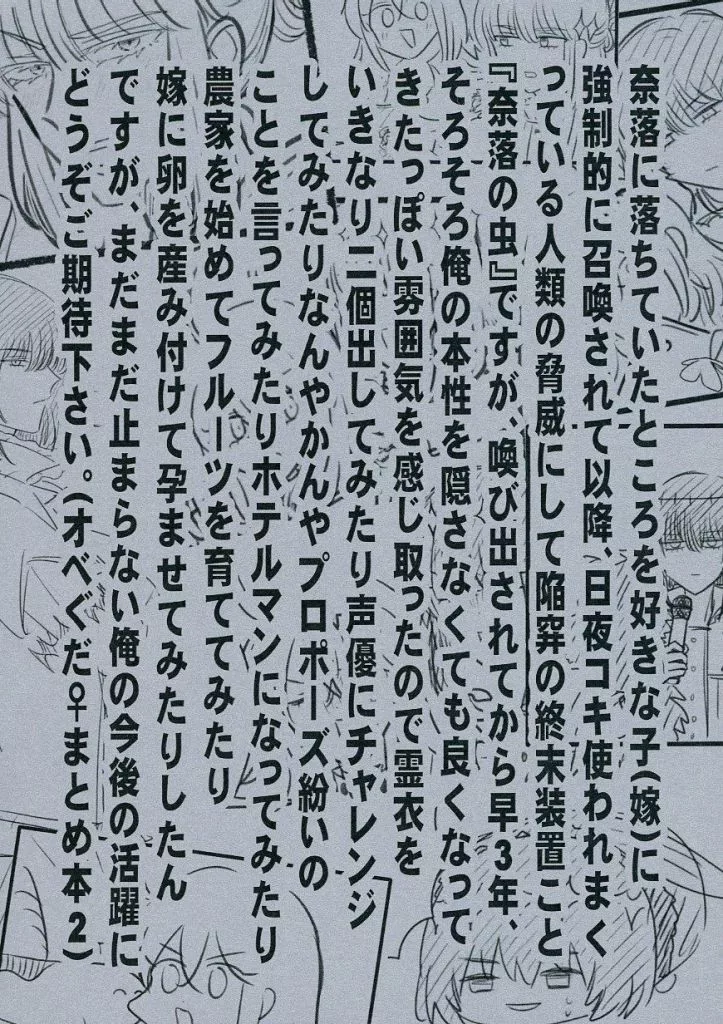 奈落に落ちていたところを好きな子(嫁)に
強制的に召喚されて以降、日夜コキ使われまく
っている人類の脅威にして陥穽の終末装置こと
『奈落の虫』ですが、喚び出されてから早3年、
そろそろ俺の本性を隠さなくても良くなって
きたっぽい雰囲気を感じ取ったので霊衣を
いきなり二個出してみたり声優にチャレンジ
してみたりなんやかんやプロポーズ紛いの
ことを言ってみたりホテルマンになってみたり
農家を始めてフルーツを育ててみたり
嫁に卵を産み付けて孕ませてみたりしたん
ですが、まだまだ止まらない俺の今後の活躍に
どうぞご期待下さい。(オベぐだ♀まとめ本2)